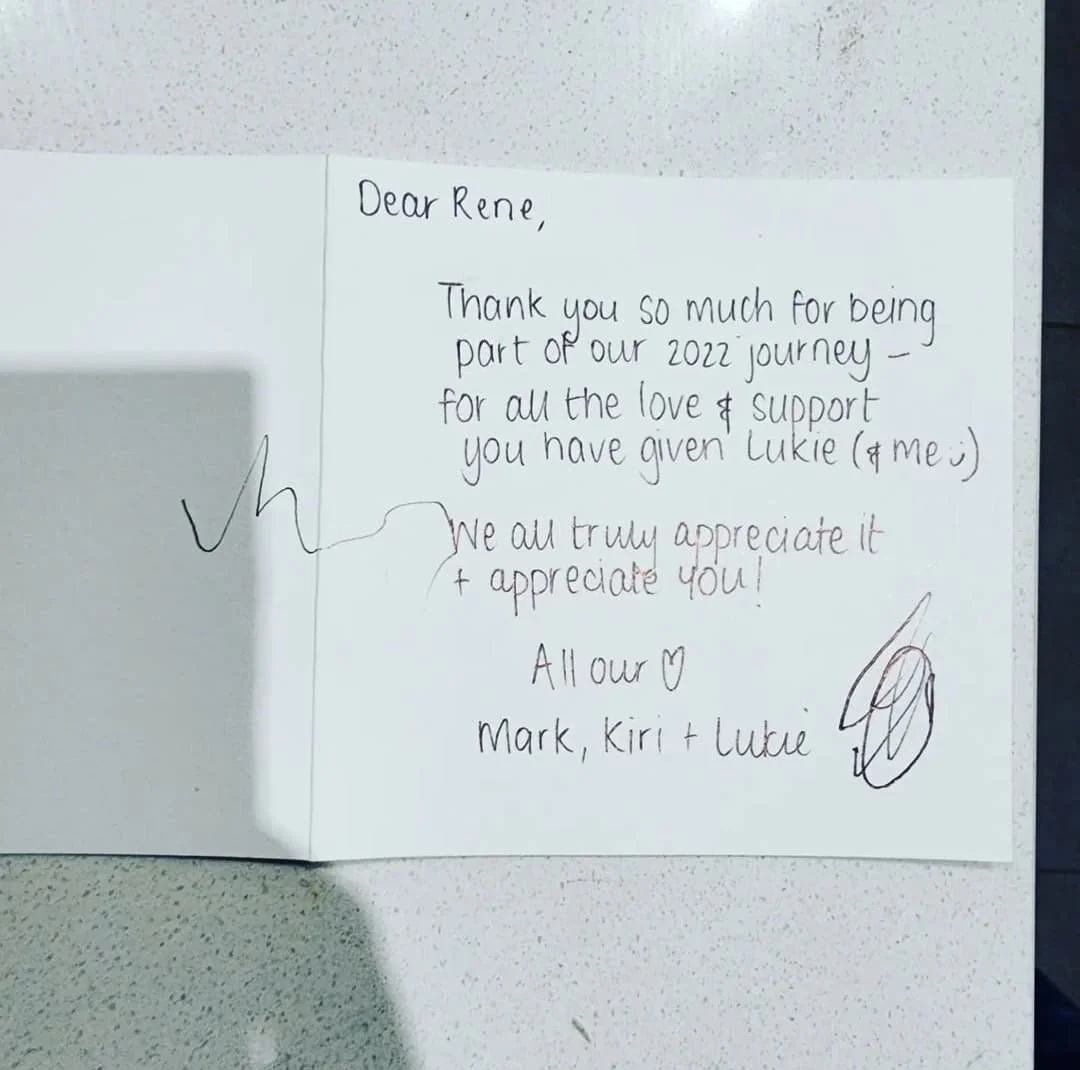 Dear Rene,
Thank you so much for being
part of our 2022 journey –
for all the love & support
you have given Lukie (& me :))
We all truly appreciate it
+ appreciate you!
All our ♡
Mark, Kiri + Lukie